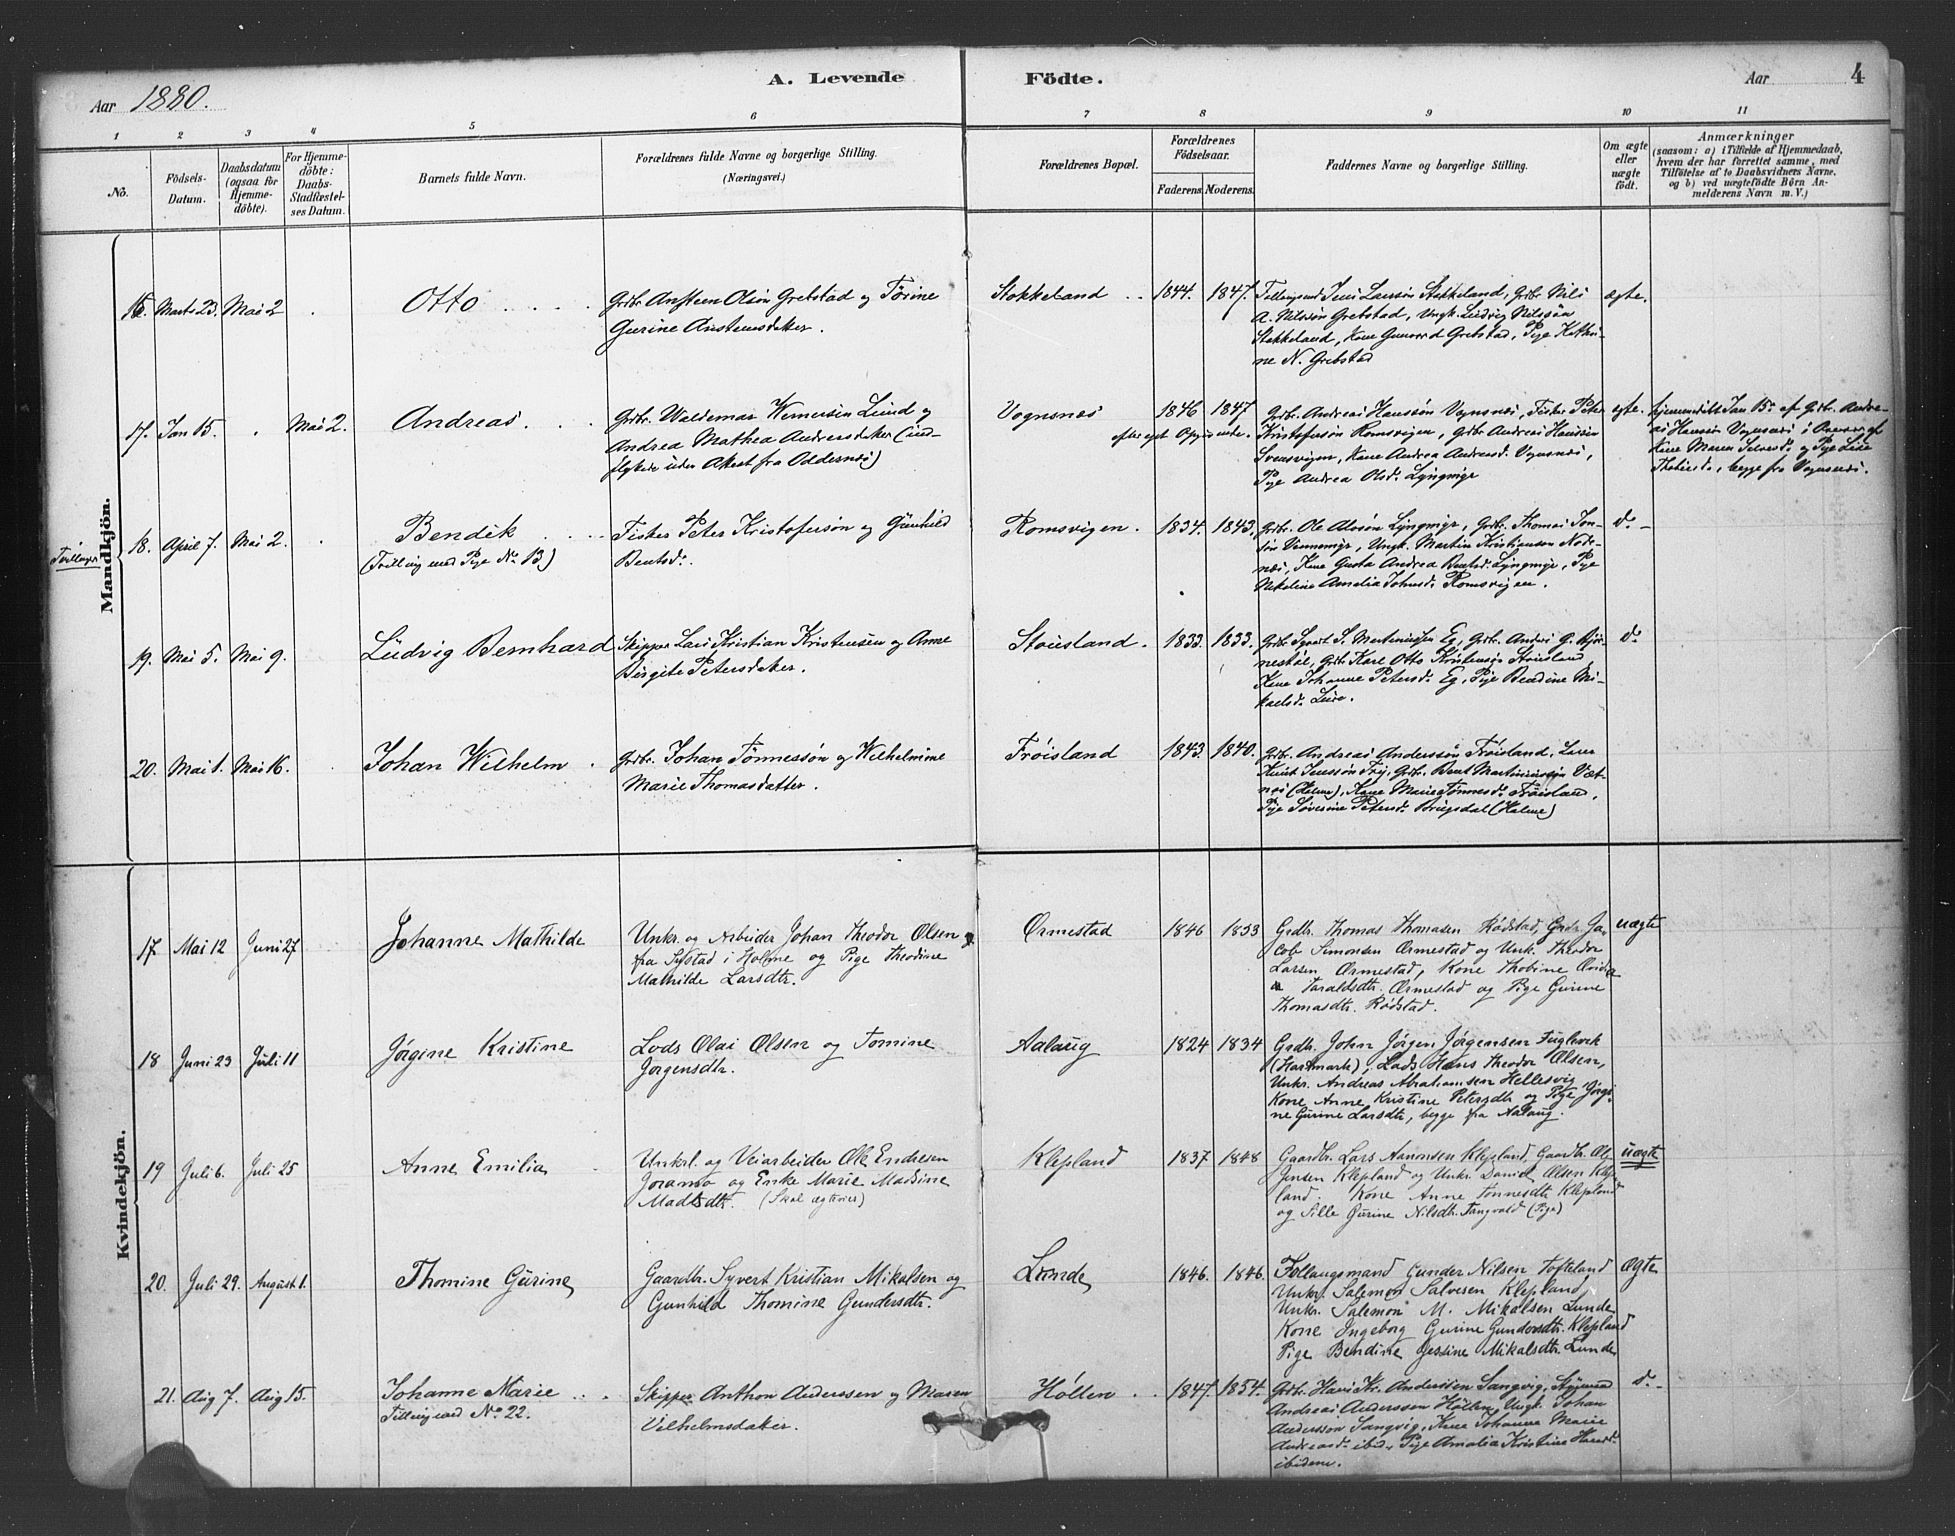 Aar 1880.
A. Levende Födte.
Aar 4
1 2 3 4 5 6 7 8 9 10 11
No.
Födsels-
Datum.
Daabsdatum
(ogsaa for
Hjemme-
döbte).
For Hjemme-
döbte:
Daabs-
Stadfæstel-
ses Datum.
Barnets fulde Navn.
Forældrenes fulde Navne og borgerlige Stilling.
(Næringsvei.)
Forældrenes Bopæl.
Forældrenes
Födselsaar.
Faderens. Moderens.
Faddernes Navne og borgerlige Stilling.
Om ægte
eller
uægte
födt.
Anmærkninger
(saasom: a) i Tilfælde af Hjemmedaab,
hvem der har forrettet samme, med
Tilföielse af to Daabsvidners Navne,
og b) ved uægtefödte Börn An-
melderens Navn m. V.)
Mandkjön.
16. Marts 23. Mai 2 Otto
Grdbr. Ansteen Olsön Grebstad og Törine
Gurine Anstensdatter.
Stokkeland 1844. 1847.
Jens Larsön Stokkeland, Grdbr. Nils
A. Nilssön Grebstad, Ungk. Ludvig Nilssön
Stokkeland, Kone Gunvord Grebstad, Pige Kathi-
ne N. Grebstad
ægte.
17. Jan 15. Mai 2. Andreas
Grdbr. Waldemar Wernersen Lund og
Andrea Mathea Andersdatter (ind-
flyttede uden Attest fra Oddernes)
Vognsnes 1846 1847
efter eget Opgivende.
Grdbr. Andreas Hanssön Vognsnes, Fisker Peter
Kristofersön Romsvigen, Grdbr. Andreas Hanssön
Svensvigen, Kone Andrea Andreasd. Vognsnes,
Pige Andrea Olsd. Lyngmyr
ægte.
hjemmedöbt Jan 15. af Grdbr. Andre-
as Hanssön Vognsnes i Overvær af
Kone Maren Salvesd. og Pige Lise
Thobiasd., begge fra Vognsnes.
Tvillinger
18. April 7. Mai 2. Bendik
(Tvilling med Pige No. 13)
Fisker Peter Kristofersön og Gunhild
Bentsd.
Romsvigen. 1834. 1843.
Grdbr. Ole Olosön Lyngmyr, Grdbr. Thomas Jon-
sön Vennemyr, Ungk. Martin Kristiansen Node-
nes, Kone Gusta Andrea Bentsd. Lyngmyr, Pige
Nikoline Amalia Johnsd. Romsvigen.
d.
19. Mai 5. Mai 9. Ludvig Bernhard
Skipper Lars Kristian Kristensen og Anne
Birgite Petersdatter.
Stousland. 1833. 1833.
Grdbr. Syvert S. Martiniussen Eg, Grdbr. Anders G. Björ-
nestöl, Grdbr. Karl Otto Kristensen Stousland
Kone Johanne Petersd. Eg, Pige Bendine Mi-
kaelsd.
d.
20. Mai 1. Mai 16. Johan Wilhelm
Grdbr. Johan Tönnessön og Wilhelmine
Marie Thomasdatter.
Fröisland 1843. 1840.
Grdbr. Andreas Anderssön Fröisland,
Knut Jenssön Try, Grdbr. Bent Martiniussön Vat-
nes (Halme), Kone Marie Tönnesd. Fröisland,
Pige Severine Petersd. Brugsdal (Halme)
Kvindekjön.
17 Mai 12 Juni 27 Johanne Mathilde
Unkr. og Arbeider Johan Theodor Olsen
fra Systad i Holme og Pige Theodine
Mathilde Larsdtr.
Ormestad 1846 1853
Grdbr. Thomas Thomasen Rödstad, Grdr. Ja-
cob Simonsen Ormestad og Unk. Theodor
Larsen Ormestad, Kone Thobine
Taraldsdtr. Ormestad og Pige Gurine
Thomasdtr. Rödstad.
uægte
18 Juni 23 Juli 11 Jörgine Kristine
Lods Olai Olsen og Tomine
Jörgensdtr.
Aalaug 1824 1834
Grdbr. John Jörgen Jörgensen Fuglevik
(Hartmark), Lods Hans Theodor Olsen,
Unkr. Andreas Abrahamsen Hellesvig
Kone Anne Kristine Petersdtr og Pige Jörgi-
ne Gurine Larsdtr, begge fra Aalaug.
19 Juli 6. Juli 25 Anne Emilia
Unkrl. og Veiarbeider Ole Endresen
Joranso og Enke Marie Madsine
Madtsdtr. (Skal ægtevies)
Klepland 1837 1848
Gaardbr. Lars Aanonsen Klepland, Gaardbr. Ole
Jensen Klepland og Unkr. Daniel Olsen Klep-
land. Kone Anne Tönnesdtr Klepland
og Sille Gurine Nilsdtr. Tangvald (Pige)
uægte
20. Juli 29. August 1. Thomine Gurine
Gaardbr. Syvert Kristian Mikalsen og
Gunhild Thomine Gundersdtr.
Lunde 1846. 1846.
Follaugsmand Gunder Nilsen Tofteland
Unkr. Salemon Salvesen Klepland,
Unkr. Salemon M. Mikalsen Lunde
Kone Ingeborg Gurine Gundersdtr. Klepland
Pige Bendine Jessine Mikalsdtr. Lunde
Ægte
21. Aug 7. Aug 15. Johanne Marie
Tvilling med No. 22.
Skipper Anthon Anderssen og Maren
Vilhelmsdatter.
Höllen 1847. 1854.
Grdbr. Hans Kr. Anderssen Sangvig, Styrmand
Andreas Anderssen Höllen, Ungk. Johan
Anderssen Sangvig, Kone Johanne Marie
Andreasd. ibid., Pige Amalia Kristine Hansd.
ibidem.
d.